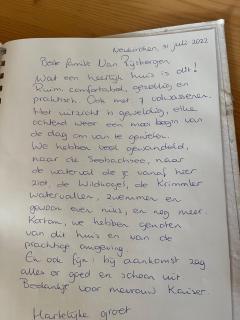 Neukirchen, 31 juli 2022
Beste familie Van Rijsbergen
Wat een heerlijk huis is dit!
Ruim, comfortabel, gezellig en
praktisch. Ook met 7 volwassenen.
Het uitzicht is geweldig, elke
ochtend weer een mooi begin van
de dag om van te genieten.
We hebben veel gewandeld,
naar de Seebachsee, naar
de waterval die je vanaf hier
ziet, de Wildkogel, de Krimmler
watervallen, zwemmen en
gewoon even niks, en nog meer.
Kortom, we hebben genoten
van dit huis en van de
prachtige omgeving.
En ook fijn: bij aankomst zag
alles er goed en schoon uit
Bedankje voor mevrouw Kaiser.
Hartelijke groet